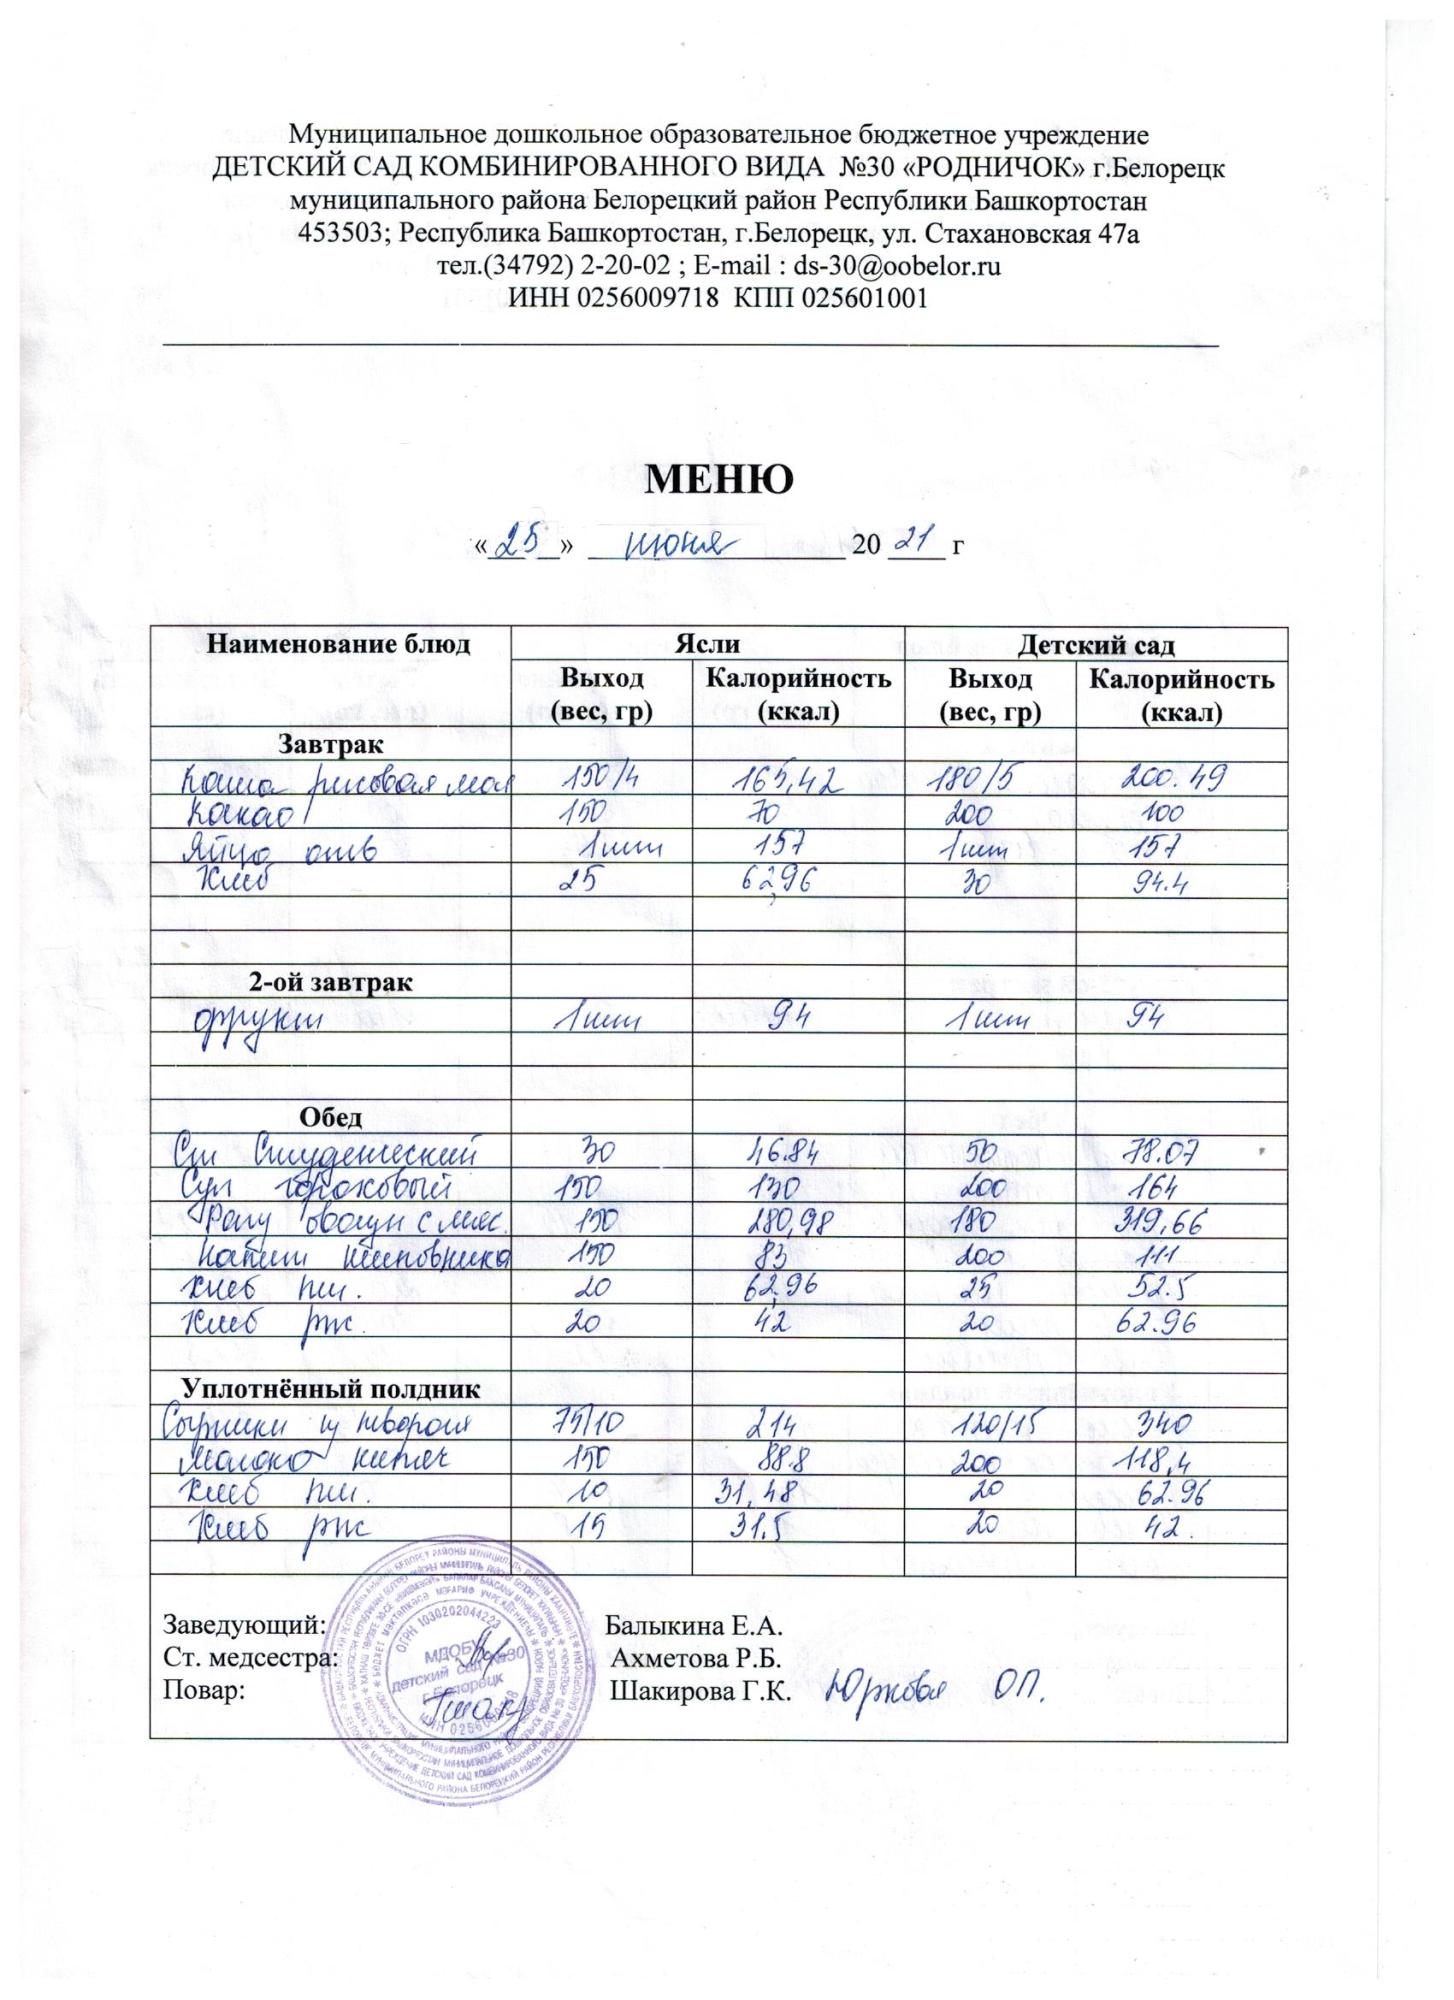 Муниципальное дошкольное образовательное бюджетное учреждение
ДЕТСКИЙ САД КОМБИНИРОВАННОГО ВИДА №30 «РОДНИЧОК» г.Белорецк
муниципального района Белорецкий район Республики Башкортостан
453503; Республика Башкортостан, г.Белорецк, ул. Стахановская 47а
тел.(34792) 2-20-02 ; E-mail : ds-30@oobelor.ru
ИНН 0256009718 КПП 025601001
МЕНЮ
«25» июня 2021 г
Наименование блюд Ясли Детский сад
Выход (вес, гр) Калорийность (ккал) Выход (вес, гр) Калорийность (ккал)
Завтрак
Каша рисовая мол 150/4 165,42 180/5 200.49
Какао 150 70 200 100
Яйцо отв 1шт 157 1шт 157
Хлеб 25 62,96 30 94.4
2-ой завтрак
фрукт 1шт 94 1шт 94
Обед
Сал Студенческий 30 46.84 50 78.07
Суп гороховый 150 130 200 164
Рагу овощн с мяс. 150 280,98 180 319,66
Напит шиповника 150 83 200 111
хлеб пш. 20 62,96 25 52.5
Хлеб рж. 20 42 20 62.96
Уплотнённый полдник
Сырники из творога 75/10 214 120/15 340
Молоко кипяч 150 88.8 200 118,4
Хлеб пш. 10 31,48 20 62.96
Хлеб рж 15 31,5 20 42.
Заведующий: Балыкина Е.А.
Ст. медсестра: Ахметова Р.Б.
Повар: Шакирова Г.К. Юркова О.П.
ОГРН 1030202044223
МДОБУ
детский сад №30
г.Белорецк